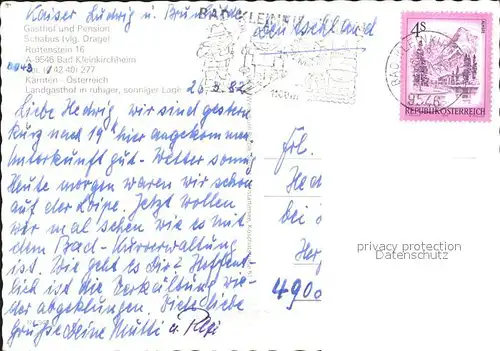 Kaiser Ludwig u. Brun
Gasthof und Pension
Schabus (vlg. Drage)
Rottenstein 16
A-9546 Bad Kleinkirchheim
Tel. (0 42 40) 277
Kärnten - Österreich
Landgasthof in ruhiger, sonniger Lage
26.3.82
Liebe Hedwig, wir sind gestern
kurz nach 19h hier angekommen
Unterkunft gut - Wetter sonnig
Heute morgen waren wir schon
auf der Loipe. Jetzt wollen
wir mal sehen wie es mit
dem Bad - Kurverwaltung
ist. Wie geht es Dir? Hoffent-
lich ist die Erkältung wie-
der abgeklungen. Viele liebe
Grüße Deine Mutti u.
BAD KLEINKI
Deutschland
4S
REPUBLIK ÖSTERREICH
9546
Frl.
Hed
bei
Her
4900
privacy protection
Datenschutz